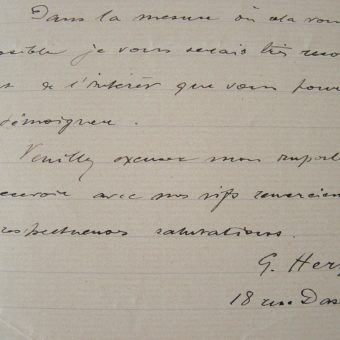 Dans la mesure où cela vou
ossible je vous serais très reco
s de l'intérêt que vous pour
témoigner.
Veuillez excuser mon import
ecevoir avec mes vifs remercien
respectueuses salutations.
G. Her
18 rue Das